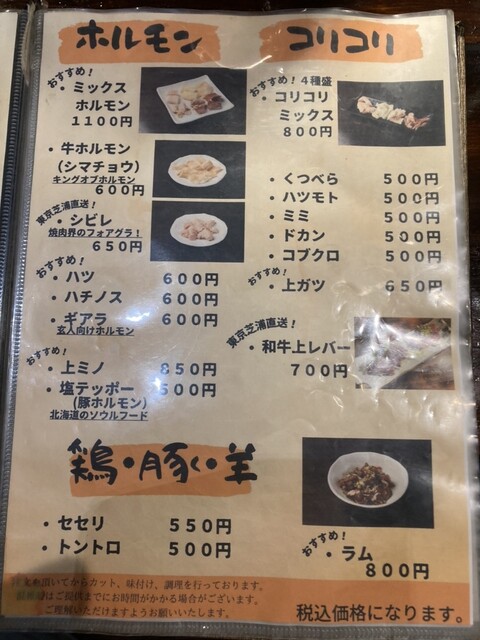 ホルモン
おすすめ！
・ミックス
ホルモン
1100円
・牛ホルモン
(シマチョウ)
キングオブホルモン
600円
東京芝浦直送！
・シビレ
焼肉界のフォアグラ！
650円
おすすめ！
・ハツ 600円
・ハチノス 600円
・ギアラ 600円
玄人向けホルモン
おすすめ！
・上ミノ 850円
・塩テッポー 500円
(豚ホルモン)
北海道のソウルフード
コリコリ
おすすめ！4種盛
・コリコリ
ミックス
800円
・くつべら 500円
・ハツモト 500円
・ミミ 500円
・ドカン 500円
・コブクロ 500円
おすすめ！
・上ガツ 650円
東京芝浦直送！
・和牛上レバー
700円
鶏・豚・羊
・セセリ 550円
・トントロ 500円
おすすめ！
・ラム
800円
頂いてからカット、味付け、調理を行っております。
はご提供までにお時間がかかる場合がございます。
ご理解いただけますようお願いいたします。
税込価格になります。